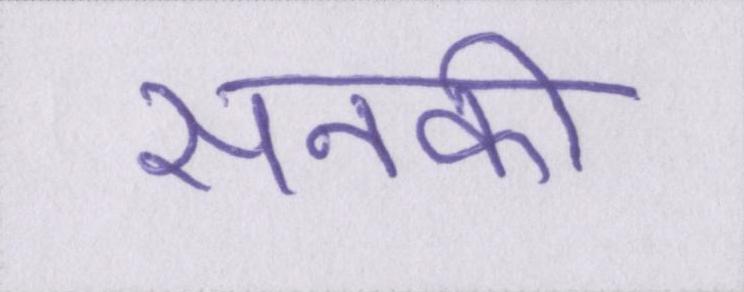 सनकी